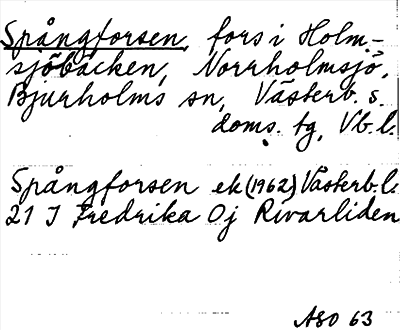 Spångforsen, fors i Holm-
sjöbäcken, Norrholmsjö,
Bjurholms sn, Västerb. s.
doms. tg, Vb. l.
Spångforsen ek (1962) Västerb. l.
21 J Fredrika Oj Rivarliden
ASO 63